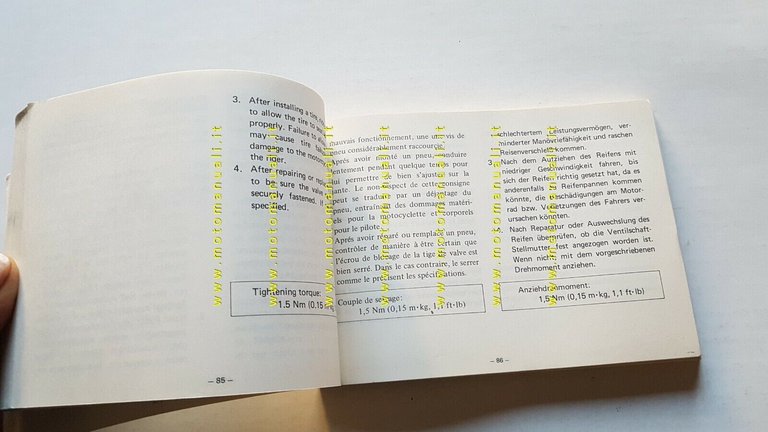 3. After installing a tire, ride
to allow the tire to
properly. Failure to
may cause tire
damage to the
the rider.
4. After repairing or
to be sure the valve
securely fastened. If
specified.
Tightening torque:
1.5 Nm (0.15
– 85 –
mauvais fonctionnement, une usure du
pneu considérablement raccourcie.
Après avoir monté un pneu, conduire
lentement pendant quelque temps pour
lui permettre de bien s'ajuster sur la
jante. Le non-respect de cette consigne
peut se traduire par un déjantage du
pneu, entraînant des dommages matériels
pour la motocyclette et corporels
pour le pilote.
Après avoir réparé ou remplacé un pneu,
contrôler de manière à être certain que
l'écrou de blocage de la tige de valve est
bien serré. Dans le cas contraire, le serrer
comme le précisent les spécifications.
Couple de serrage:
1,5 Nm (0,15 m·kg, 1,1 ft·lb)
schlechtertem Leistungsvermögen, ver-
minderter Manövrierfähigkeit und raschen
Reifenverschleiß kommen.
3. Nach dem Aufziehen des Reifens mit
niedriger Geschwindigkeit fahren, bis
sich der Reifen richtig gesetzt hat, da es
anderenfalls zu Reifenpannen kommen
könnte, die Beschädigungen am Motor-
rad bzw. Verletzungen des Fahrers ver-
ursachen könnten.
Nach Reparatur oder Auswechslung des
Reifen überprüfen, ob die Ventilschaft-
Stellmutter fest angezogen worden ist.
Wenn nicht, mit dem vorgeschriebenen
Drehmoment anziehen.
Anziehdrehmoment:
1,5 Nm (0,15 m·kg, 1,1 ft·lb)
– 86 –
www.motomanuali.it
www.motomanuali.it
www.motomanuali.it
www.motomanuali.it
www.motomanuali.it
www.motomanuali.it